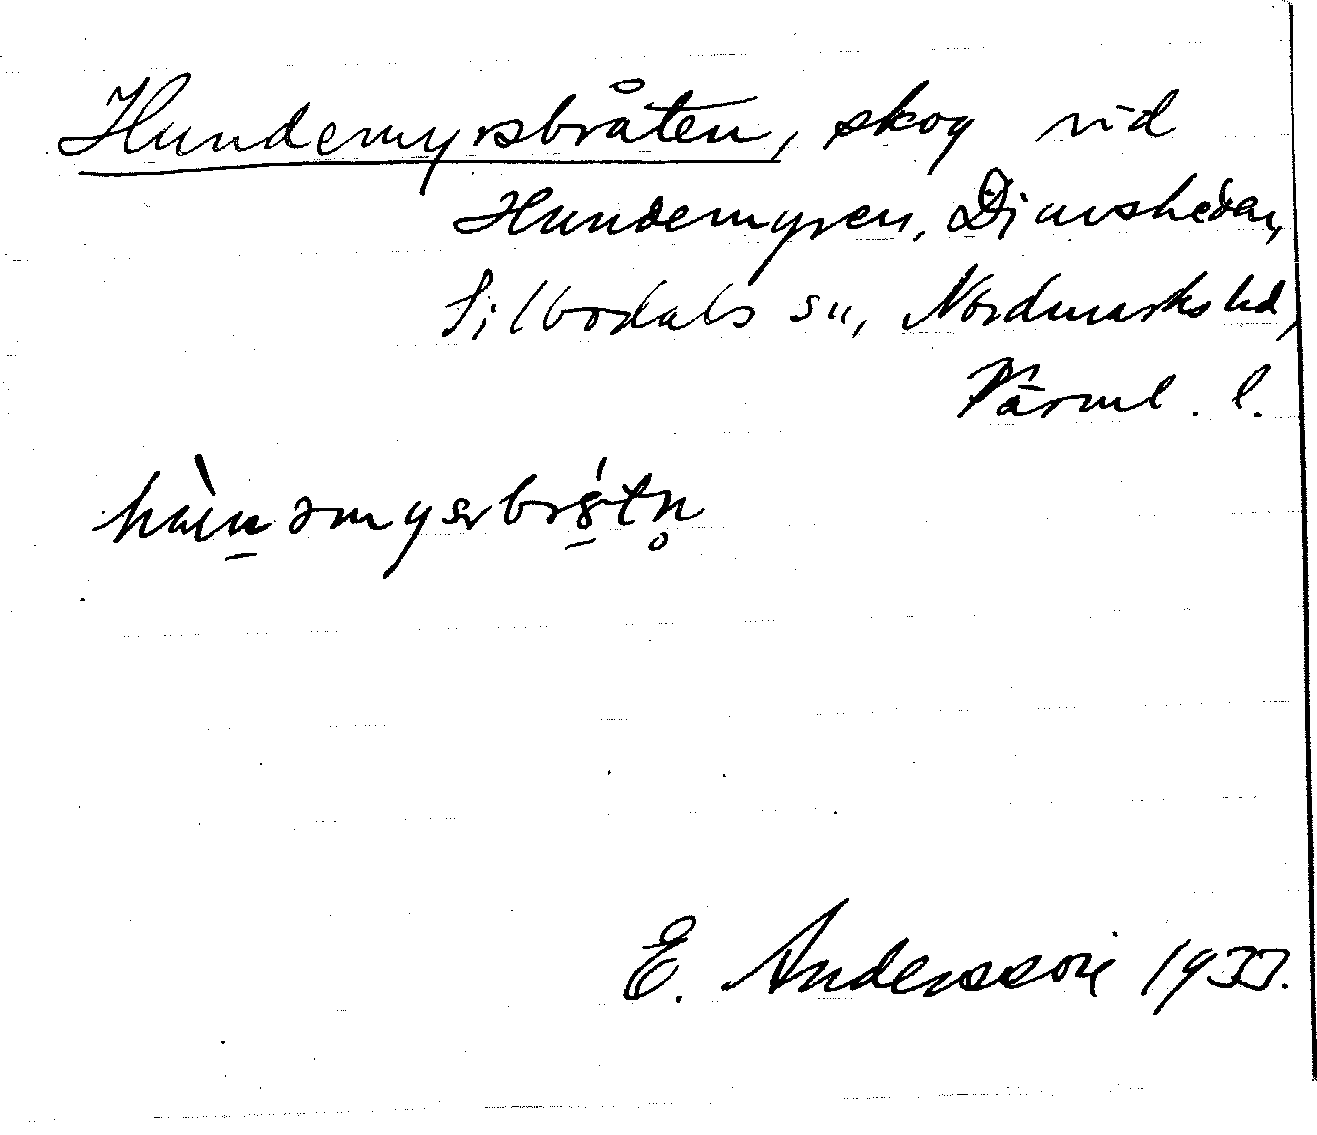 Hundemyrsbråten, skog vid
Hundemyren, Djursheden,
Silbodals sn, Nordmarks hd,
Värml. l.
E. Andersson 1933.